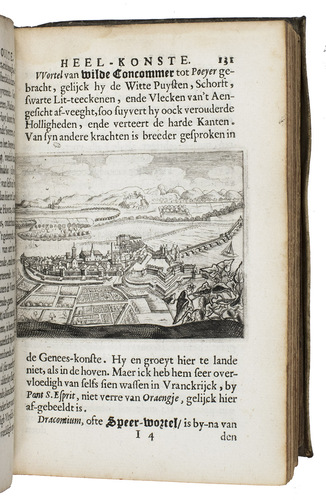 HEEL-KONSTE. 131
VVortel van wilde Concommer tot Poeyer ge-
bracht, gelijck hy de Witte Puysten, Schorft,
swarte Lit-teeckenen, ende Vlecken van't Aen-
gesicht af-veeght, soo suyvert hy oock verouderde
Holligheden, ende verteert de harde Kanten.
Van syn andere krachten is breeder gesproken in
de Genees-konste. Hy en groeyt hier te lande
niet, als in de hoven. Maer ick heb hem seer over-
vloedigh van selfs sien wassen in Vranckrijck, by
Pont S. Esprit, niet verre van Oraengje, gelijck hier
af-gebeeldt is.
Dracontium, ofte Speer-wortel/ is by-na van
I 4 den